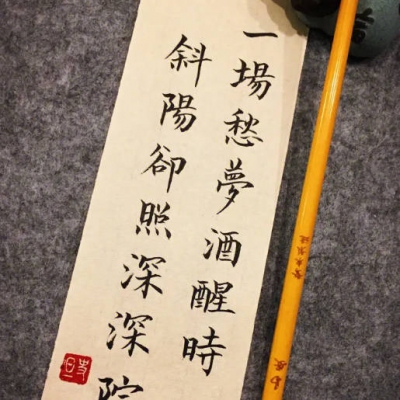 一場愁夢酒醒時
斜陽卻照深深院